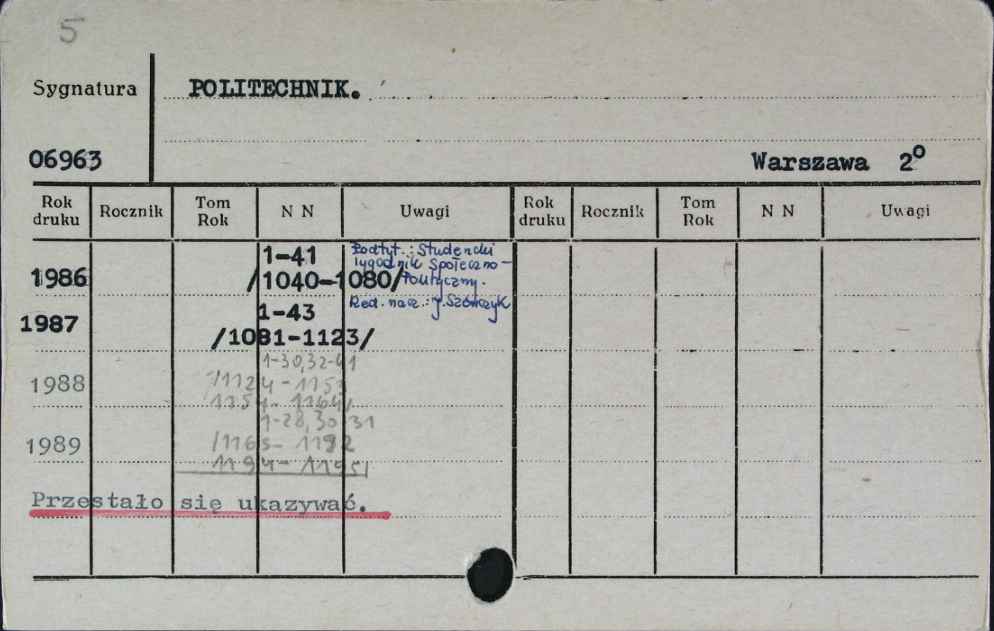 5
Sygnatura POLITECHNIK.
06963 Warszawa 2º
Rok druku Rocznik Tom Rok N N Uwagi Rok druku Rocznik Tom Rok N N Uwagi
1986 1-41
/1040-1080/
Podtyt.: Studencki
Tygodnik Społeczno-
Polityczny.
Red. nacz.: J. Szówczyk
1987 1-43
/1081-1123/
1988 1-30,32-41
/1124-1153
1989 1-28,30 31
/1165-1192
1194-1195/
Przestało się ukazywać.